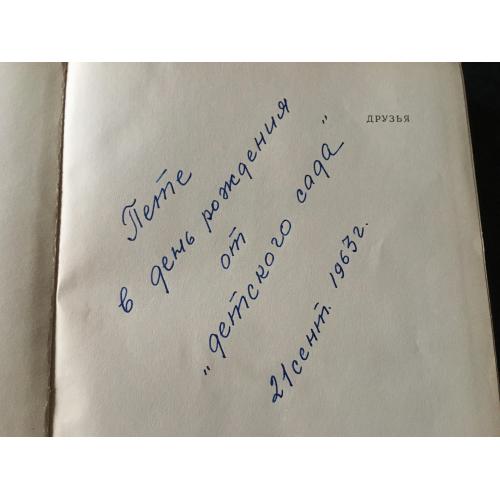 ДРУЗЬЯ
Пете
в день рождения
от
"детского сада"
21 сент. 1963 г.